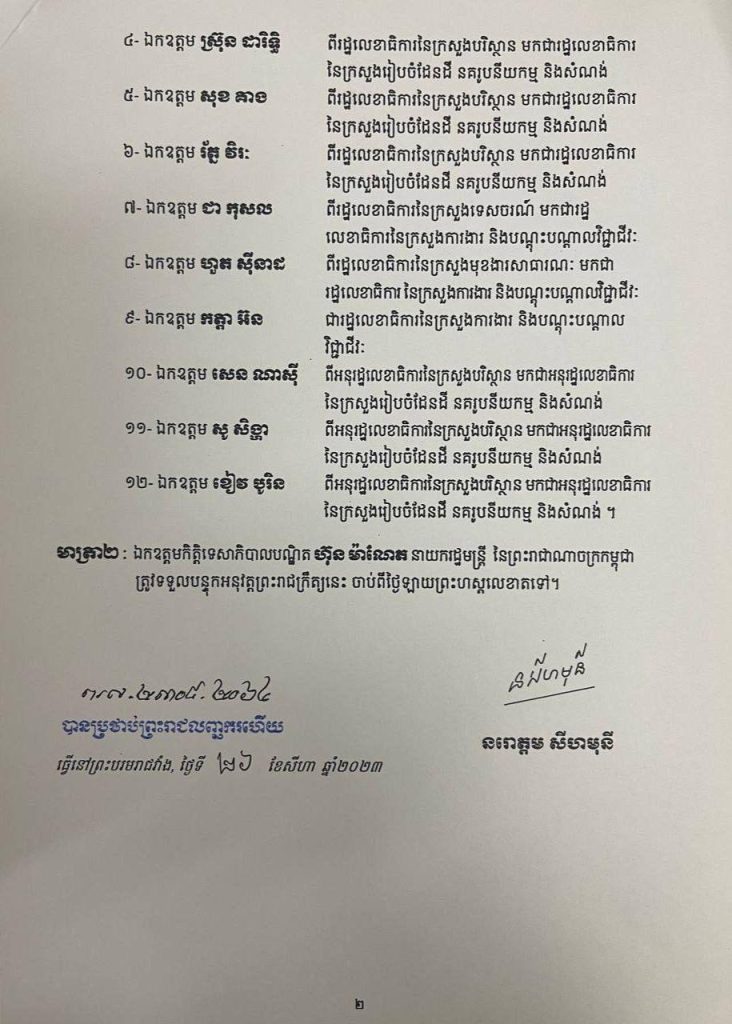 ៤- ឯកឧត្តម ស្រ៊ុន ដារិទ្ធិ ពីរដ្ឋលេខាធិការនៃក្រសួងបរិស្ថាន មកជារដ្ឋលេខាធិការ
នៃក្រសួងរៀបចំដែនដី នគរូបនីយកម្ម និងសំណង់
៥- ឯកឧត្តម សុខ គាង ពីរដ្ឋលេខាធិការនៃក្រសួងបរិស្ថាន មកជារដ្ឋលេខាធិការ
នៃក្រសួងរៀបចំដែនដី នគរូបនីយកម្ម និងសំណង់
៦- ឯកឧត្តម រ័ត្ន វិរៈ ពីរដ្ឋលេខាធិការនៃក្រសួងបរិស្ថាន មកជារដ្ឋលេខាធិការ
នៃក្រសួងរៀបចំដែនដី នគរូបនីយកម្ម និងសំណង់
៧- ឯកឧត្តម ជា កុសល ពីរដ្ឋលេខាធិការនៃក្រសួងទេសចរណ៍ មកជារដ្ឋ
លេខាធិការនៃក្រសួងការងារ និងបណ្តុះបណ្តាលវិជ្ជាជីវៈ
៨- ឯកឧត្តម ហួត ស៊ីនាដ ពីរដ្ឋលេខាធិការនៃក្រសួងមុខងារសាធារណៈ មកជា
រដ្ឋលេខាធិការ នៃក្រសួងការងារ និងបណ្តុះបណ្តាលវិជ្ជាជីវៈ
៩- ឯកឧត្តម កត្តា អ៊ន ជារដ្ឋលេខាធិការនៃក្រសួងការងារ និងបណ្តុះបណ្តាល
វិជ្ជាជីវៈ
១០- ឯកឧត្តម សេន ណាស៊ី ពីអនុរដ្ឋលេខាធិការនៃក្រសួងបរិស្ថាន មកជាអនុរដ្ឋលេខាធិការ
នៃក្រសួងរៀបចំដែនដី នគរូបនីយកម្ម និងសំណង់
១១- ឯកឧត្តម សូ សិង្ហា ពីអនុរដ្ឋលេខាធិការនៃក្រសួងបរិស្ថាន មកជាអនុរដ្ឋលេខាធិការ
នៃក្រសួងរៀបចំដែនដី នគរូបនីយកម្ម និងសំណង់
១២- ឯកឧត្តម ខៀវ បូរិន ពីអនុរដ្ឋលេខាធិការនៃក្រសួងបរិស្ថាន មកជាអនុរដ្ឋលេខាធិការ
នៃក្រសួងរៀបចំដែនដី នគរូបនីយកម្ម និងសំណង់ ។
មាត្រា២ : ឯកឧត្តមកិត្តិទេសាភិបាលបណ្ឌិត ហ៊ុន ម៉ាណែត នាយករដ្ឋមន្ត្រី នៃព្រះរាជាណាចក្រកម្ពុជា
ត្រូវទទួលបន្ទុកអនុវត្តព្រះរាជក្រឹត្យនេះ ចាប់ពីថ្ងៃឡាយព្រះហស្តលេខាតទៅ។
នរោត្តម សីហមុនី
បានប្រថាប់ព្រះរាជលញ្ឆករហើយ
ធ្វើនៅព្រះបរមរាជវាំង, ថ្ងៃទី ២៦ ខែសីហា ឆ្នាំ២០២៣
២